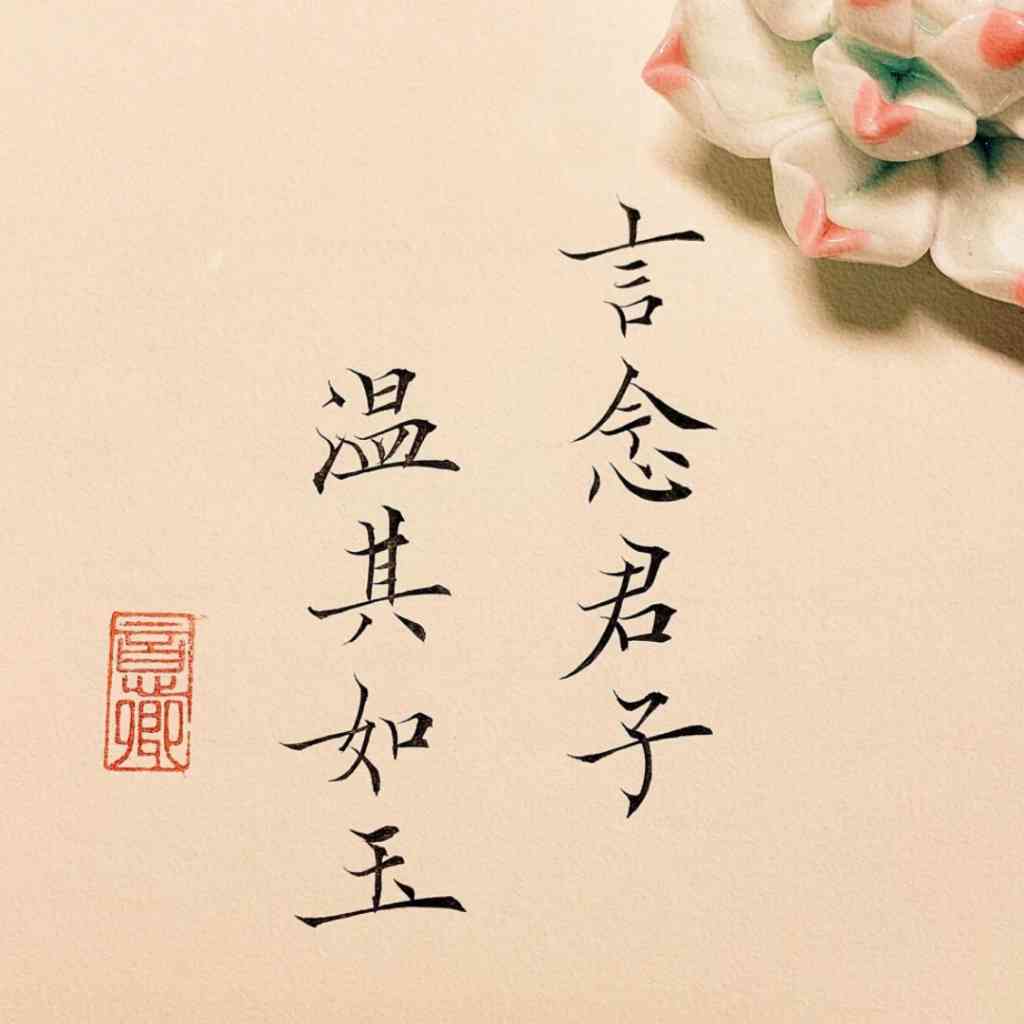 言念君子
温其如玉
意卿